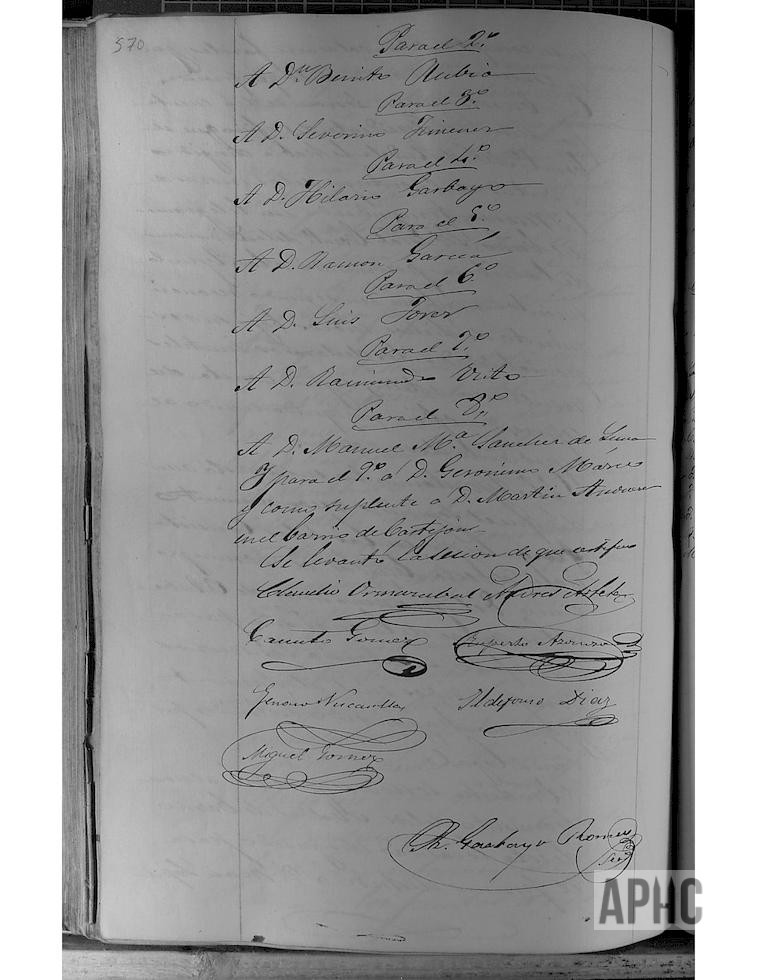 570
Para el 2.º
A Dn Benito Rubio
Para el 3.º
A D. Severino Jimenez
Para el 4.º
A D. Hilario Garbayo
Para el 5.º
A D. Ramon García
Para el 6.º
A D. Luis
Para el 7.º
A D. Raimundo Vrita
Para el 8.º
A D. Manuel M.ª Sanchez de Luna
Y para el 9.º á D. Geronimo
y como suplente a D. Martin
en el barrio de Castejon
Se levantó la sesion de que certifico
Claudio Ormazabal Andres
Canuto Gomez Ruperto
Genaro Ildefonso Diaz
Miguel Gomez
Garbayo Romeo
Srio
APHC